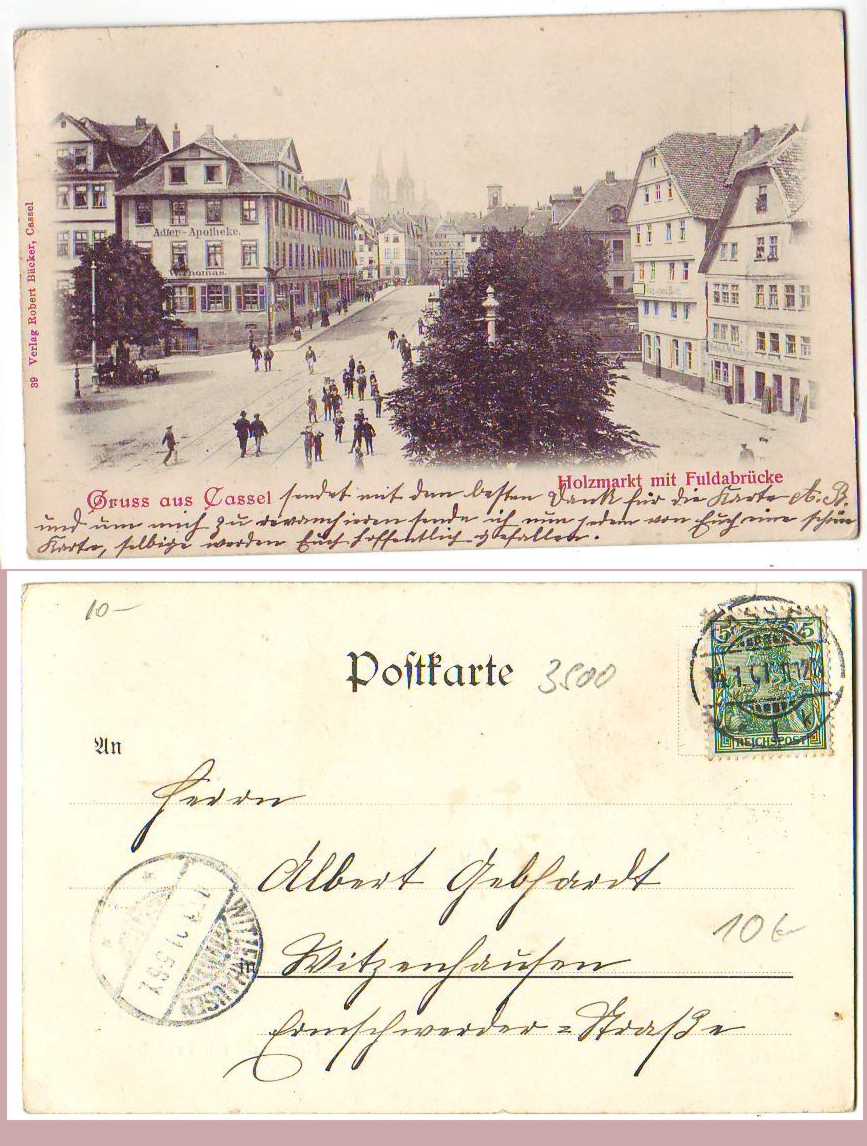 Adler-Apotheke.
W. Thomas.
39 Verlag Robert Bücker, Cassel
Holzmarkt mit Fuldabrücke
Gruss aus Cassel sendet mit dem besten Dank für die Karte A. B.
und um mich zu revanchieren sende ich nun jedem von Euch eine schöne
Karte, selbige werden Euch hoffentlich gefallen.
10-
Postkarte 3500
5 5
REICHSPOST
CASSEL
An
Herrn
Albert Gebhardt
10 €-
in Witzenhausen
WITZENHAUSEN
Ermschwerder-Straße